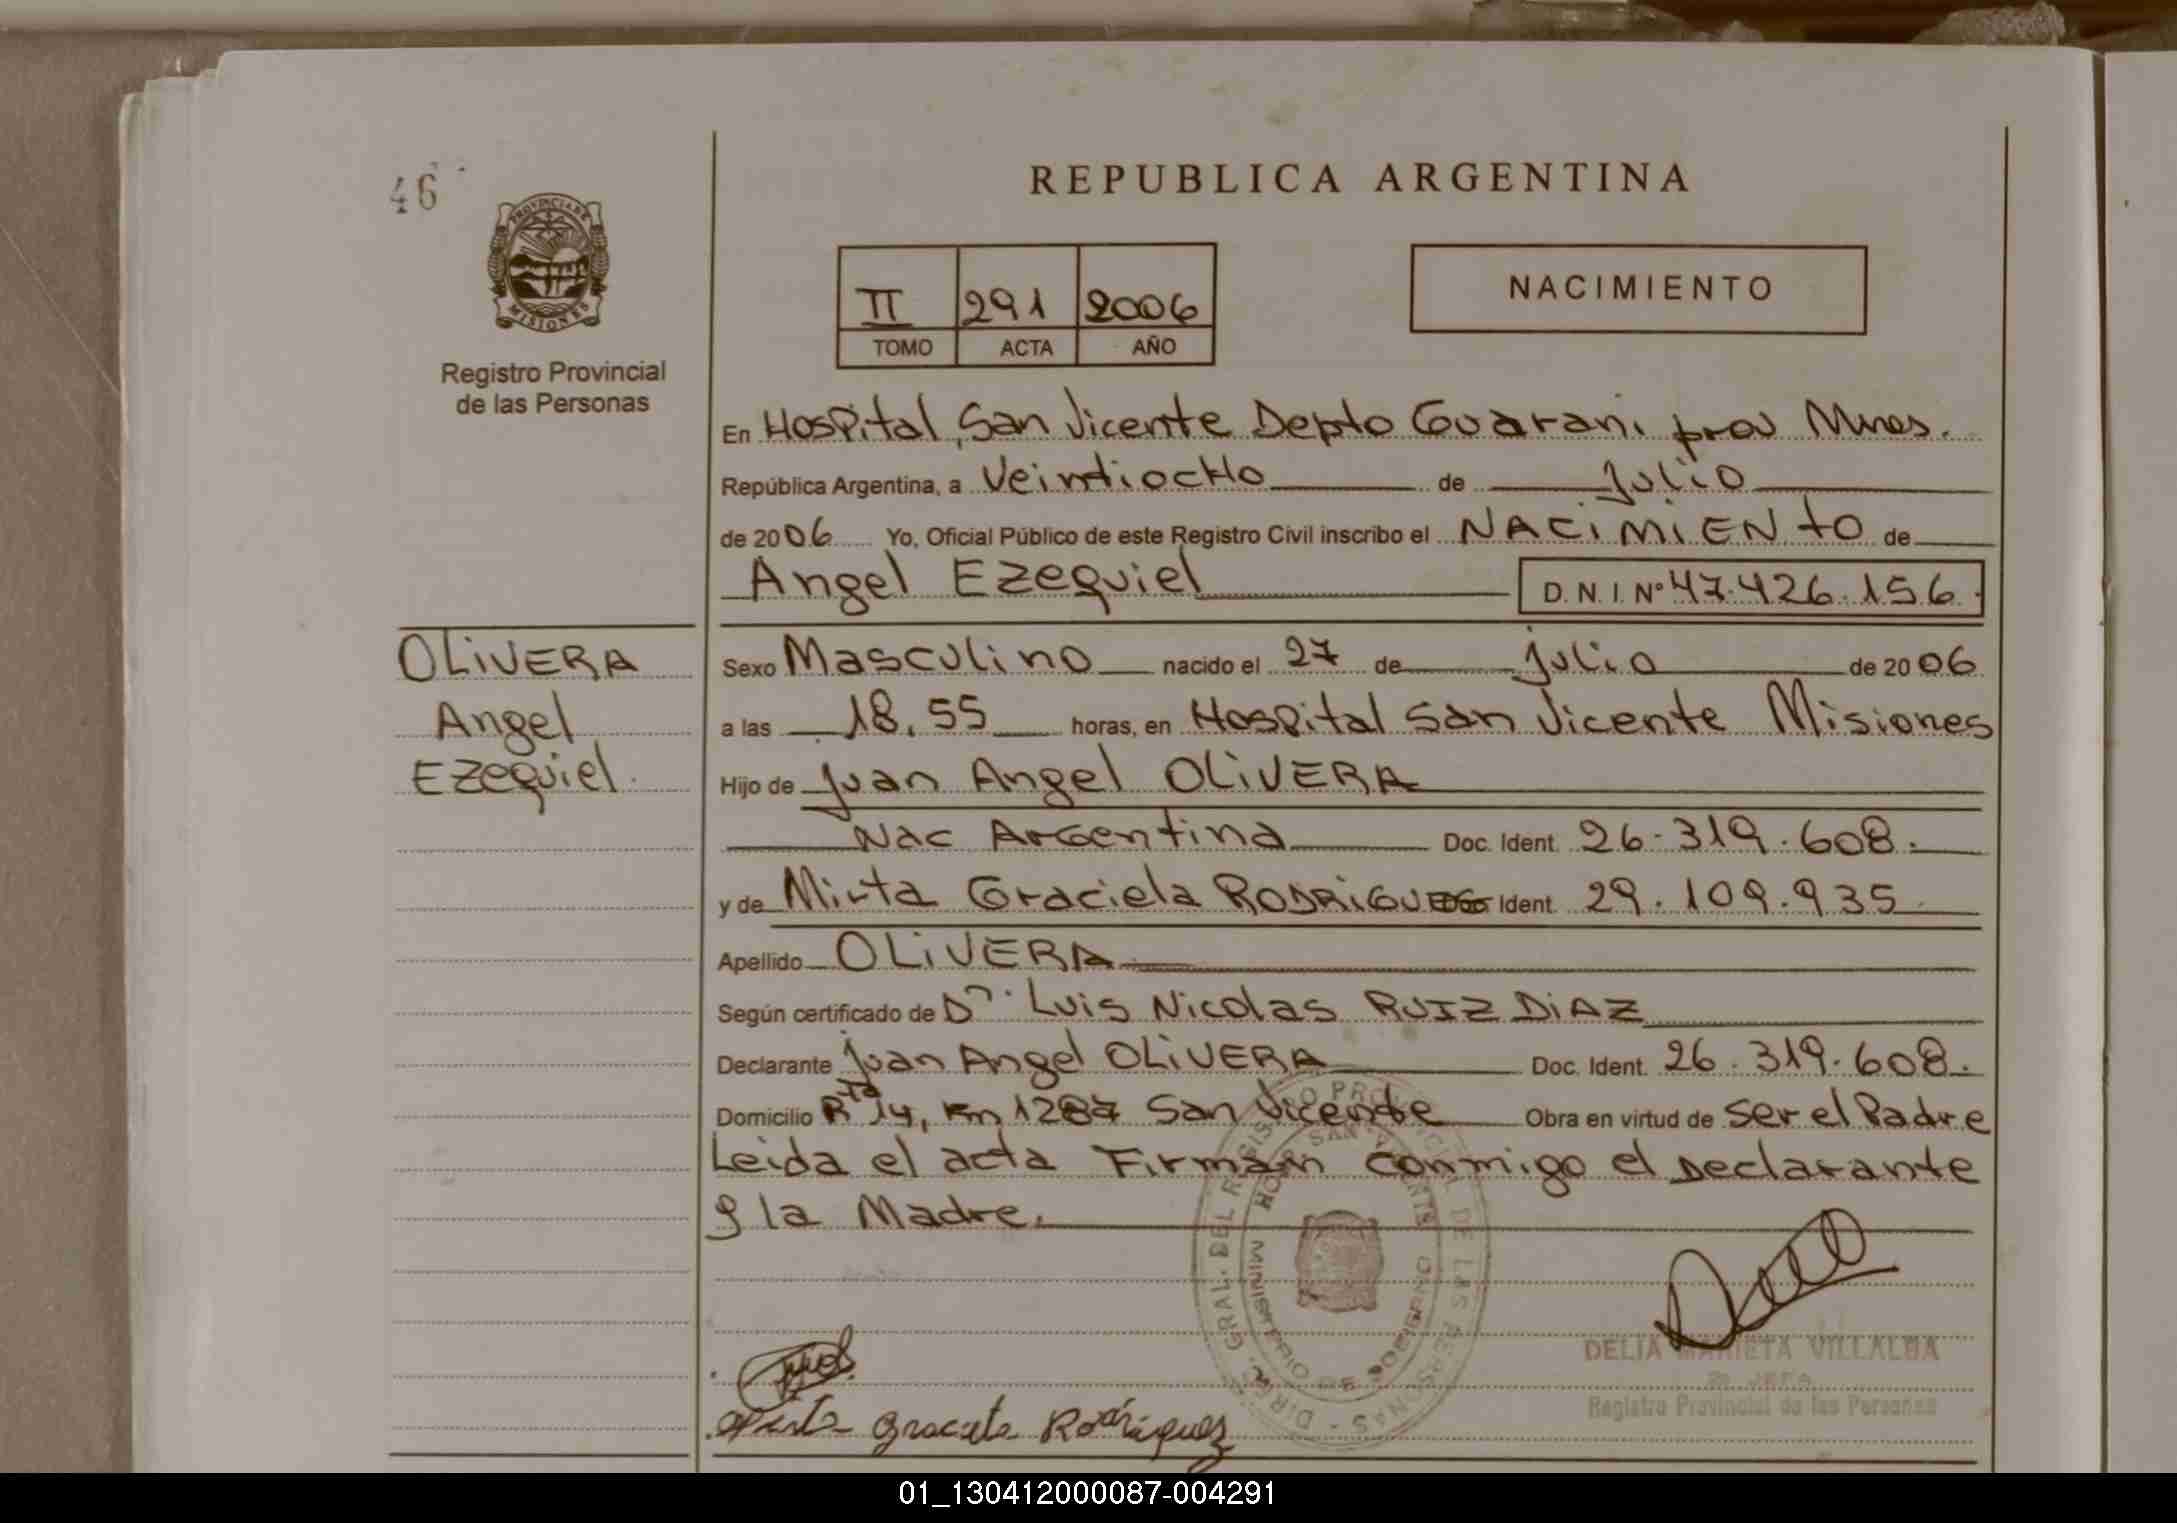 46
REPUBLICA ARGENTINA
PROVINCIA DE
MISIONES
II 291 2006
TOMO ACTA AÑO
NACIMIENTO
Registro Provincial
de las Personas
En HosPital, San Vicente Depto Guarani prov Mnes.
República Argentina, a VeintiocHo de julio
de 2006 Yo, Oficial Público de este Registro Civil inscribo el NACiMiENtO de
Angel Ezequiel D. N. I. Nº 47.426.156.
OLiVERA
Angel
Ezequiel.
Sexo Masculino nacido el 27 de julio de 2006
a las 18,55 horas, en Hospital San Vicente Misiones
Hijo de juan Angel OLiVERA
Nac Argentina Doc. Ident. 26.319.608.
y de Mirta Graciela Ident. 29.109.935
Apellido OLiVERA
Según certificado de Dr. Luis Nicolas RUIZ DiAZ
Declarante juan Angel OLiVERA Doc. Ident. 26.319.608.
Domicilio Rta 14, Km 1287 San Vicente Obra en virtud de Ser el Padre
Leida el acta Firman conmigo el Declarante
y la Madre.
DIR. GRAL. DEL REGISTRO PROVINCIAL DE LAS PERSONAS
HOSP. SAN VICENTE
MINISTERIO DE GOBIERNO
DELIA MARIETA VILLALBA
JEFA
Registro Provincial de las Personas
Mirta Graciela Rodriguez
01_130412000087-004291